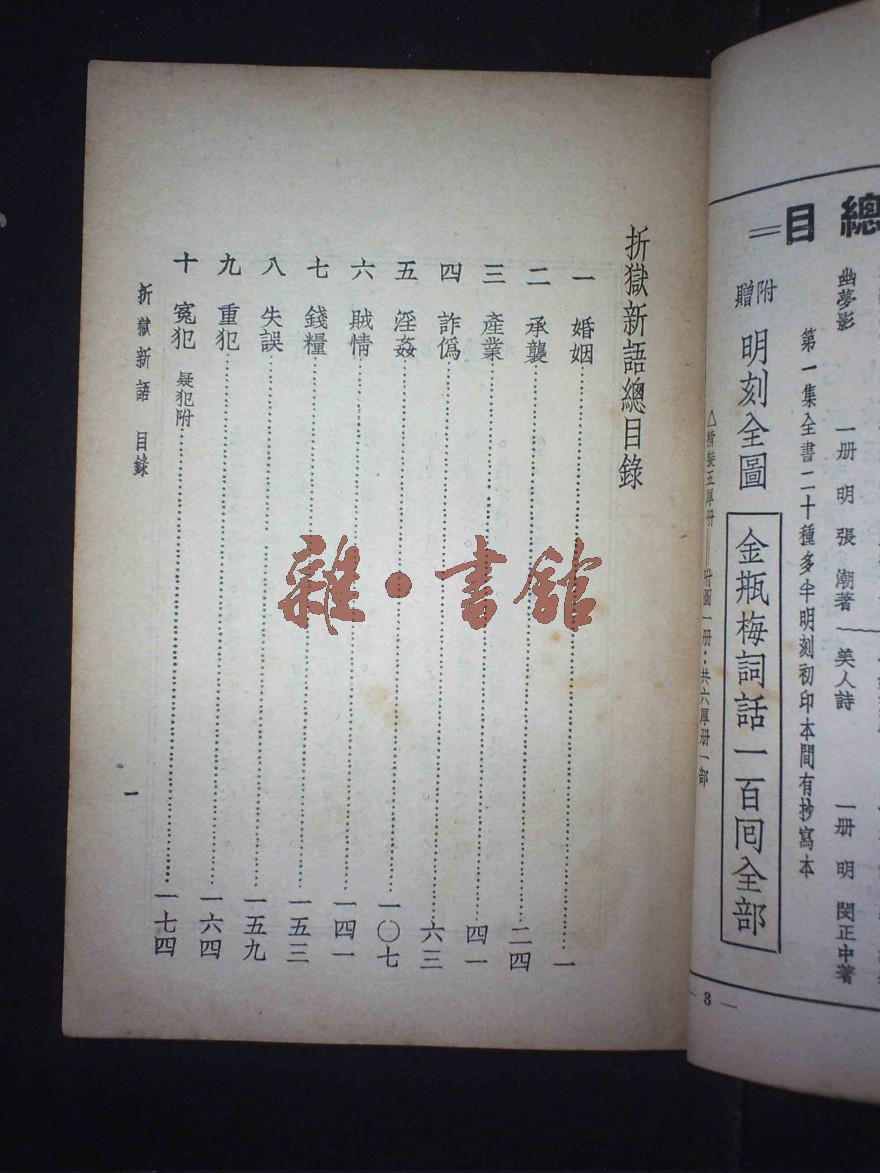 總目
幽夢影 一册 明 張潮著
美人詩 一册 明 閔正中著
第一集全書二十種多半明刻初印本間有抄寫本
附贈 明刻全圖 金瓶梅詞話一百囘全部
△精裝五厚册 附圖一册：共六厚册一部
— 3 —
折獄新語總目錄
一 婚姻……一
二 承襲……二四
三 產業……四一
四 詐僞……六三
五 淫姦……一〇七
六 賊情……一四一
七 錢糧……一五三
八 失誤……一五九
九 重犯……一六四
十 冤犯 疑犯附……一七四
折獄新語 目錄
一
雜·書館